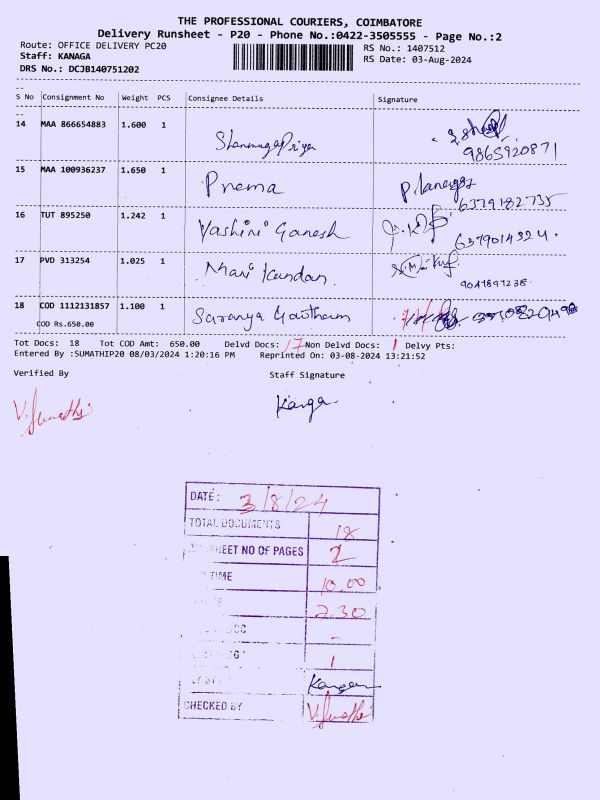 THE PROFESSIONAL COURIERS, COIMBATORE
Delivery Runsheet - P20 - Phone No.:0422-3505555 - Page No.:2
Route: OFFICE DELIVERY PC20
RS No.: 1407512
Staff: KANAGA
RS Date: 03-Aug-2024
DRS No.: DCJB140751202
S No Consignment No Weight PCS Consignee Details Signature
14 MAA 866654883 1.600 1 Shanmuga Priya
9865920871
15 MAA 100936237 1.650 1 Prema
6379182735
16 TUT 895250 1.242 1 Yashini Ganesh
6379014324.
17 PVD 313254 1.025 1 Mari Kandan.
18 COD 1112131857 1.100 1 Saranya Gowtham
COD Rs.650.00
Tot Docs: 18 Tot COD Amt: 650.00 Delvd Docs: 17 Non Delvd Docs: 1 Delvy Pts:
Entered By :SUMATHIP20 08/03/2024 1:20:16 PM Reprinted On: 03-08-2024 13:21:52
Verified By Staff Signature
V. Sumathi
Kanga
DATE: 3/8/24
TOTAL DOCUMENTS 18
SHEET NO OF PAGES 2
TIME 10.00
7.30
-
1
Kanga
CHECKED BY V. Sumathi